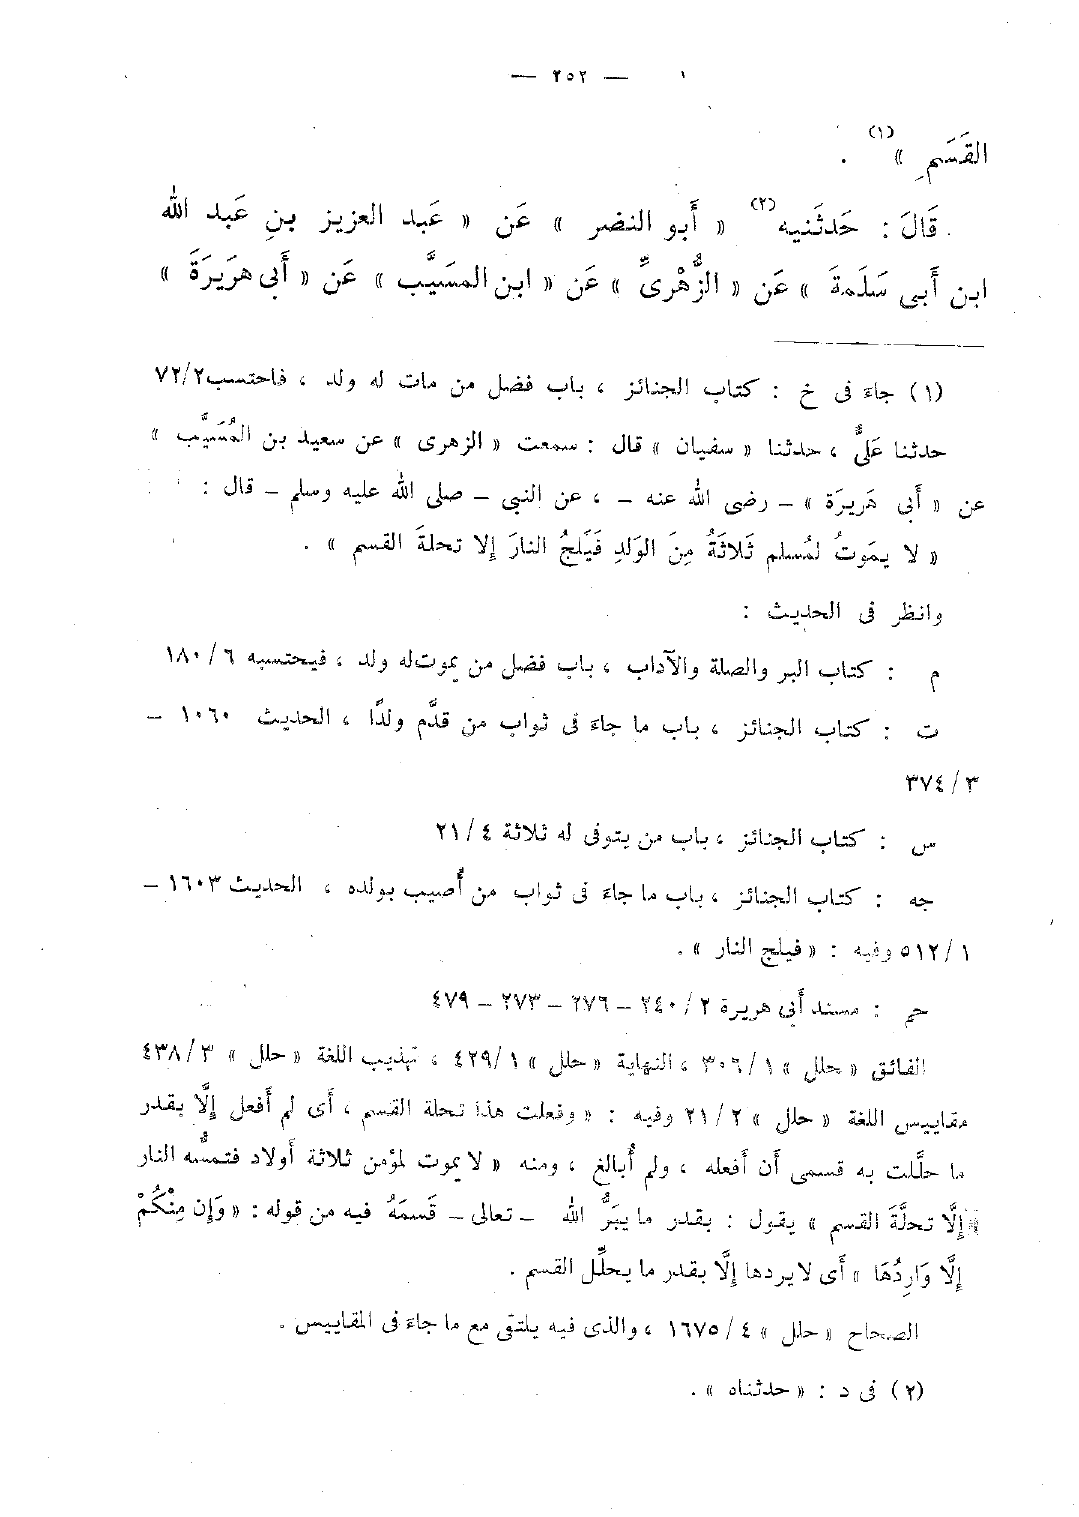 — ٢٥٢ —
القَسَمِ » (١) .
قَالَ : حَدثَنيه (٢) « أَبو النضر » عَن « عَبد العزيز بنِ عَبد الله
ابن أَبى سَلَمةَ » عَن « الزُّهْرىِّ » عَن « ابن المسَيَّب » عَن « أَبى هرَيرَةَ »
(١) جاءَ فى خ : كتاب الجنائز ، باب فضل من مات له ولد ، فاحتسب ٧٢/٢
حدثنا عَلىٌّ ، حدثنا « سفيان » قال : سمعت « الزهرى » عن سعيد بن المُسَيَّب »
عن « أَبى هَريرَة » – رضى الله عنه – ، عن النبى – صلى الله عليه وسلم – قال :
« لا يمَوتُ لمُسلم ثَلاثَةُ مِنَ الوَلدِ فَيَلجُ النارَ إلا تحلةَ القسم » .
وانظر فى الحديث :
م : كتاب البر والصلة والآداب ، باب فضل من يموت له ولد ، فيحتسبه ٦/ ١٨٠
ت : كتاب الجنائز ، باب ما جاءَ فى ثواب من قدَّم ولدًا ، الحديث ١٠٦٠ –
٣/ ٣٧٤
س : كتاب الجنائز ، باب من يتوفى له ثلاثة ٤/ ٢١
جه : كتاب الجنائز ، باب ما جاءَ فى ثواب من أُصيب بولده ، الحديث ١٦٠٣ –
١/ ٥١٢ وفيه : « فيلج النار » .
حم : مسند أَبى هريرة ٢/ ٢٤٠ – ٢٧٦ – ٢٧٣ – ٤٧٩
الفائق « حلل » ١/ ٣٠٦ ، النهاية « حلل » ١/ ٤٢٩ ، تهذيب اللغة « حلل » ٣/ ٤٣٨
مقاييس اللغة « حلل » ٢/ ٢١ وفيه : « وفعلت هذا تحلة القسم ، أَى لم أَفعل إِلَّا بقدر
ما حلَّلت به قسمى أَن أَفعله ، ولم أُبالغ ، ومنه « لا يموت لمؤمن ثلاثة أَولاد فتمسُّه النار
إِلَّا تحلَّةَ القسم » يقول : بقدر ما يبَرُّ الله – تعالى – قَسمَهُ فيه من قوله : « وَإِن مِنْكُمْ
إِلَّا وَارِدُهَا » أَى لا يردها إِلَّا بقدر ما يحلِّل القسم .
الصحاح « حلل » ٤/ ١٦٧٥ ، والذى فيه يلتقى مع ما جاءَ فى المقاييس .
(٢) فى د : « حدثناه » .